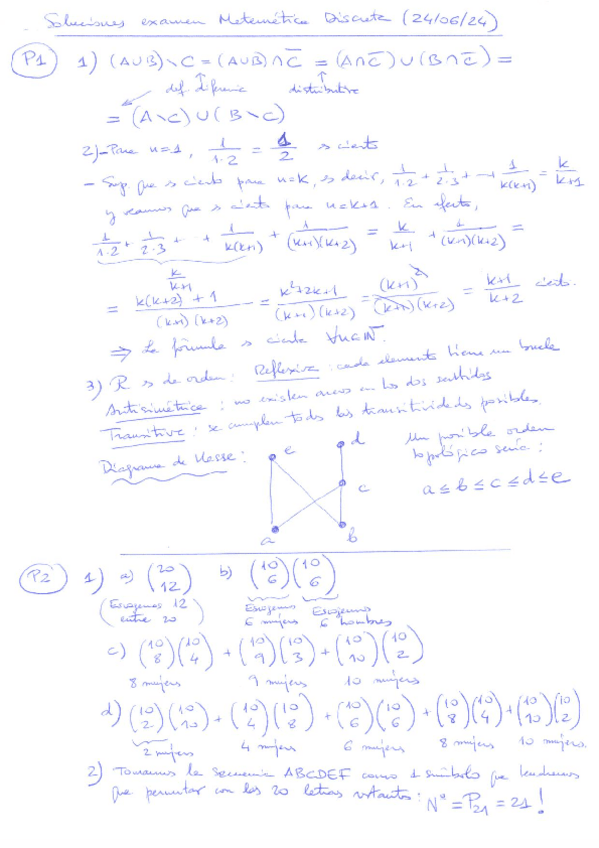 Soluciones examen Matemática Discreta (24/06/24)
P1 1) (A∪B)∖C = (A∪B)∩C̅ = (A∩C̅)∪(B∩C̅) =
def diferencia distributiva
= (A∖C)∪(B∖C)
2) - Para n=1, 1/(1·2) = 1/2 es cierto
- Sup. que es cierto para n=k, es decir, 1/(1·2) + 1/(2·3) + ··· + 1/(k(k+1)) = k/(k+1)
y veamos que es cierto para n=k+1. En efecto,
1/(1·2) + 1/(2·3) + ·· + 1/(k(k+1)) + 1/((k+1)(k+2)) = k/(k+1) + 1/((k+1)(k+2)) =
k/(k+1)
= (k(k+2)+1)/((k+1)(k+2)) = (k²+2k+1)/((k+1)(k+2)) = (k+1)²/((k+1)(k+2)) = (k+1)/(k+2) cierto.
⇒ La fórmula es cierta ∀n∈ℕ.
3) R es de orden: Reflexiva: cada elemento tiene un bucle
Antisimétrica: no existen arcos en los dos sentidos
Transitiva: se cumplen todas las transitividades posibles.
Diagrama de Hasse:
e d
c
a b
Un posible orden
topológico sería:
a ≤ b ≤ c ≤ d ≤ e
P2 1) a) (20 12) b) (10 6)(10 6)
(Escogemos 12 entre 20) Escogemos 6 mujeres Escogemos 6 hombres
c) (10 8)(10 4) + (10 9)(10 3) + (10 10)(10 2)
8 mujeres 9 mujeres 10 mujeres
d) (10 2)(10 10) + (10 4)(10 8) + (10 6)(10 6) + (10 8)(10 4) + (10 10)(10 2)
2 mujeres 4 mujeres 6 mujeres 8 mujeres 10 mujeres.
2) Tomamos la secuencia ABCDEF como 1 símbolo que tendremos
que permutar con las 20 letras restantes: Nº = P₂₁ = 21!